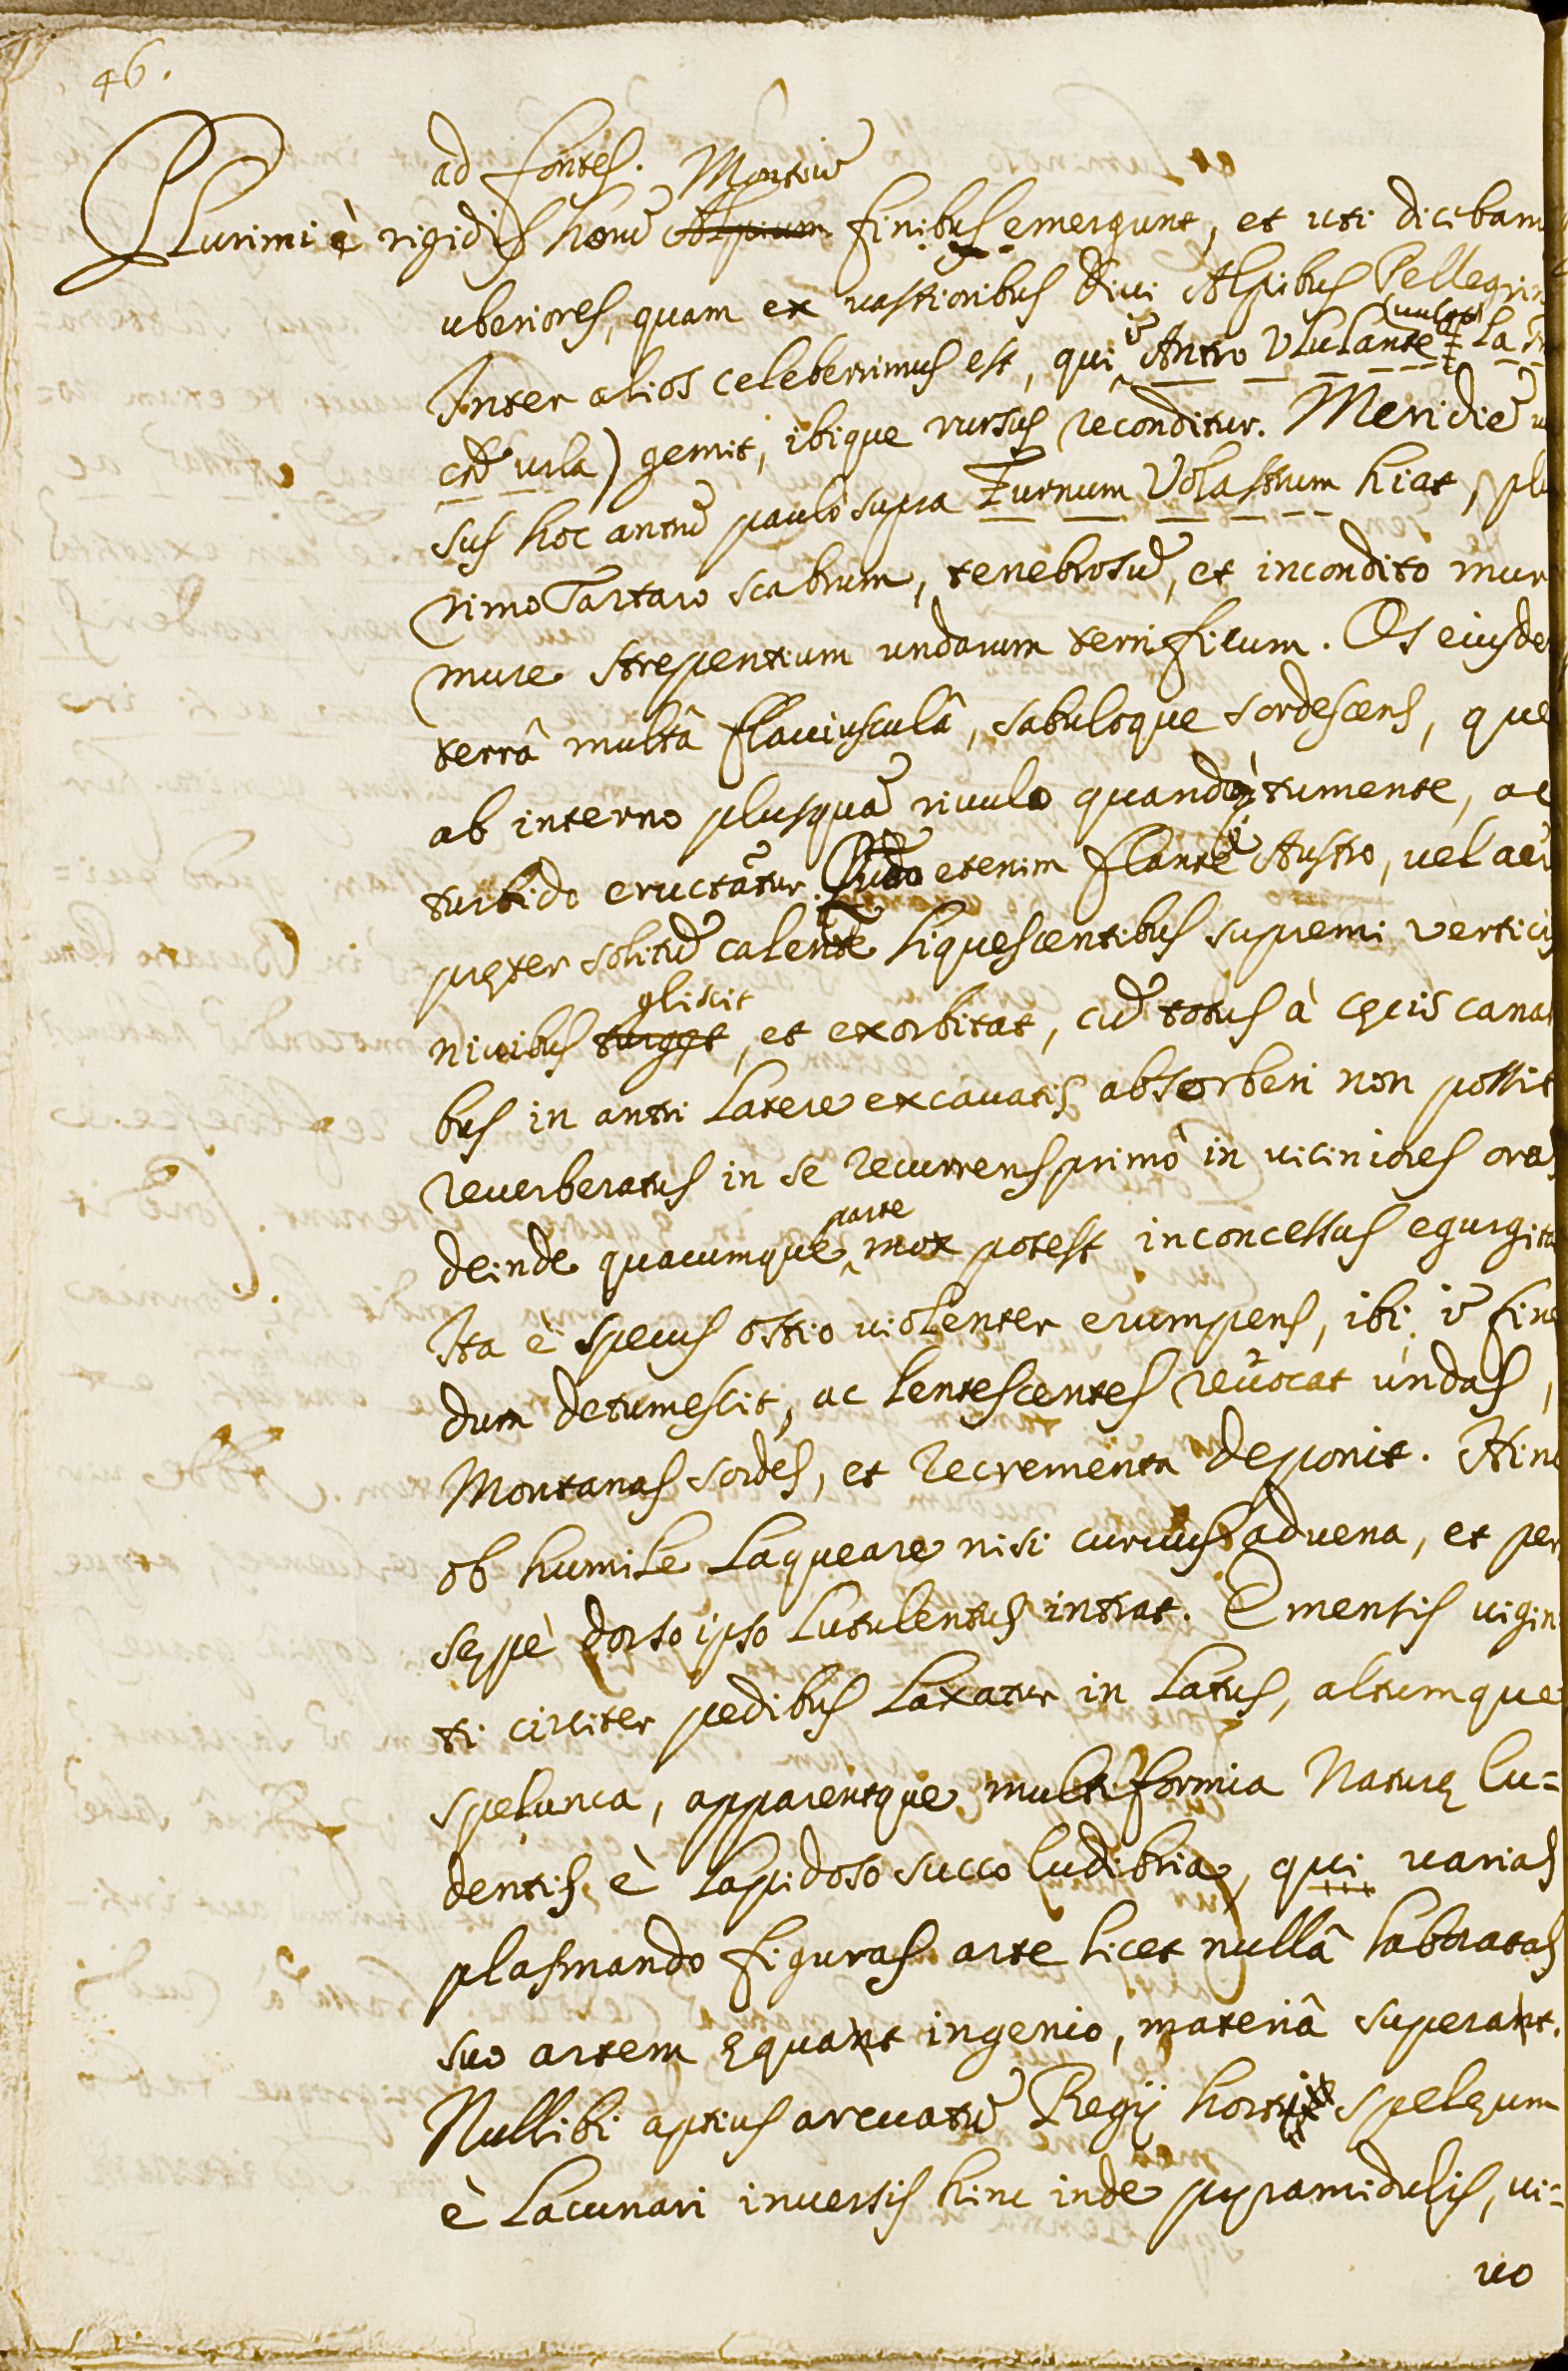 46.
ad fontes. Montiū
Plurimi è rigidis horū Alpium finibus emergunt, et uti dicebam
uberiores, quam ex vastioribus Divi Alpibus Pellegrin
Inter alios celeberrimus est, qui ī Antro Ululante (vulgo La
che urla) gemit, ibique rursus reconditur. Meridiē
sus hoc antrū paulò supra Furnum Volastrum hiat, plu
rimo Tartaro scabrum, tenebrosū, et incondito mur
mure strepentium undarum terrificum. Os eiusde
terrâ multâ flaviusculâ, sabuloque sordescens, que
ab interno plusquā rivulo quandoq; tumente, ac
turbido eructātur. etenim flante Austro, vel aere
pręter solitū calente liquescentibus supremi verticis
nivibus turget gliscit, et exorbitat, cū totus à cęcis cana
bus in antri latere excavatis absorberi non possit
reverberatus in se recurrens primò in viciniores oras
deinde quacumque parte mox potest inconcessus egurgita
Ita è specus ostio violenter erumpens, ibi ī fine
dum detumescit, ac lentescentes revocat undas,
Montanas sordes, et recrementa deponit. Hinc
ob humile laqueare nisi curvus advena, et per
sępè dorso ipso lutulentus intrat. Emensis vigin
ti circiter pedibus laxatur in latus, altumque
spelunca, apparentque multiformia Naturę lu=
dentis è lapidoso succo ludibria, qui varias
plasmando figuras arte licet nullâ laboratas
suo artem ęquant ingenio, materiâ superant.
Nullibi aptius arcuatū Regij horti spelęum
è lacunari inversis hinc inde pyramidulis, vi=
vo